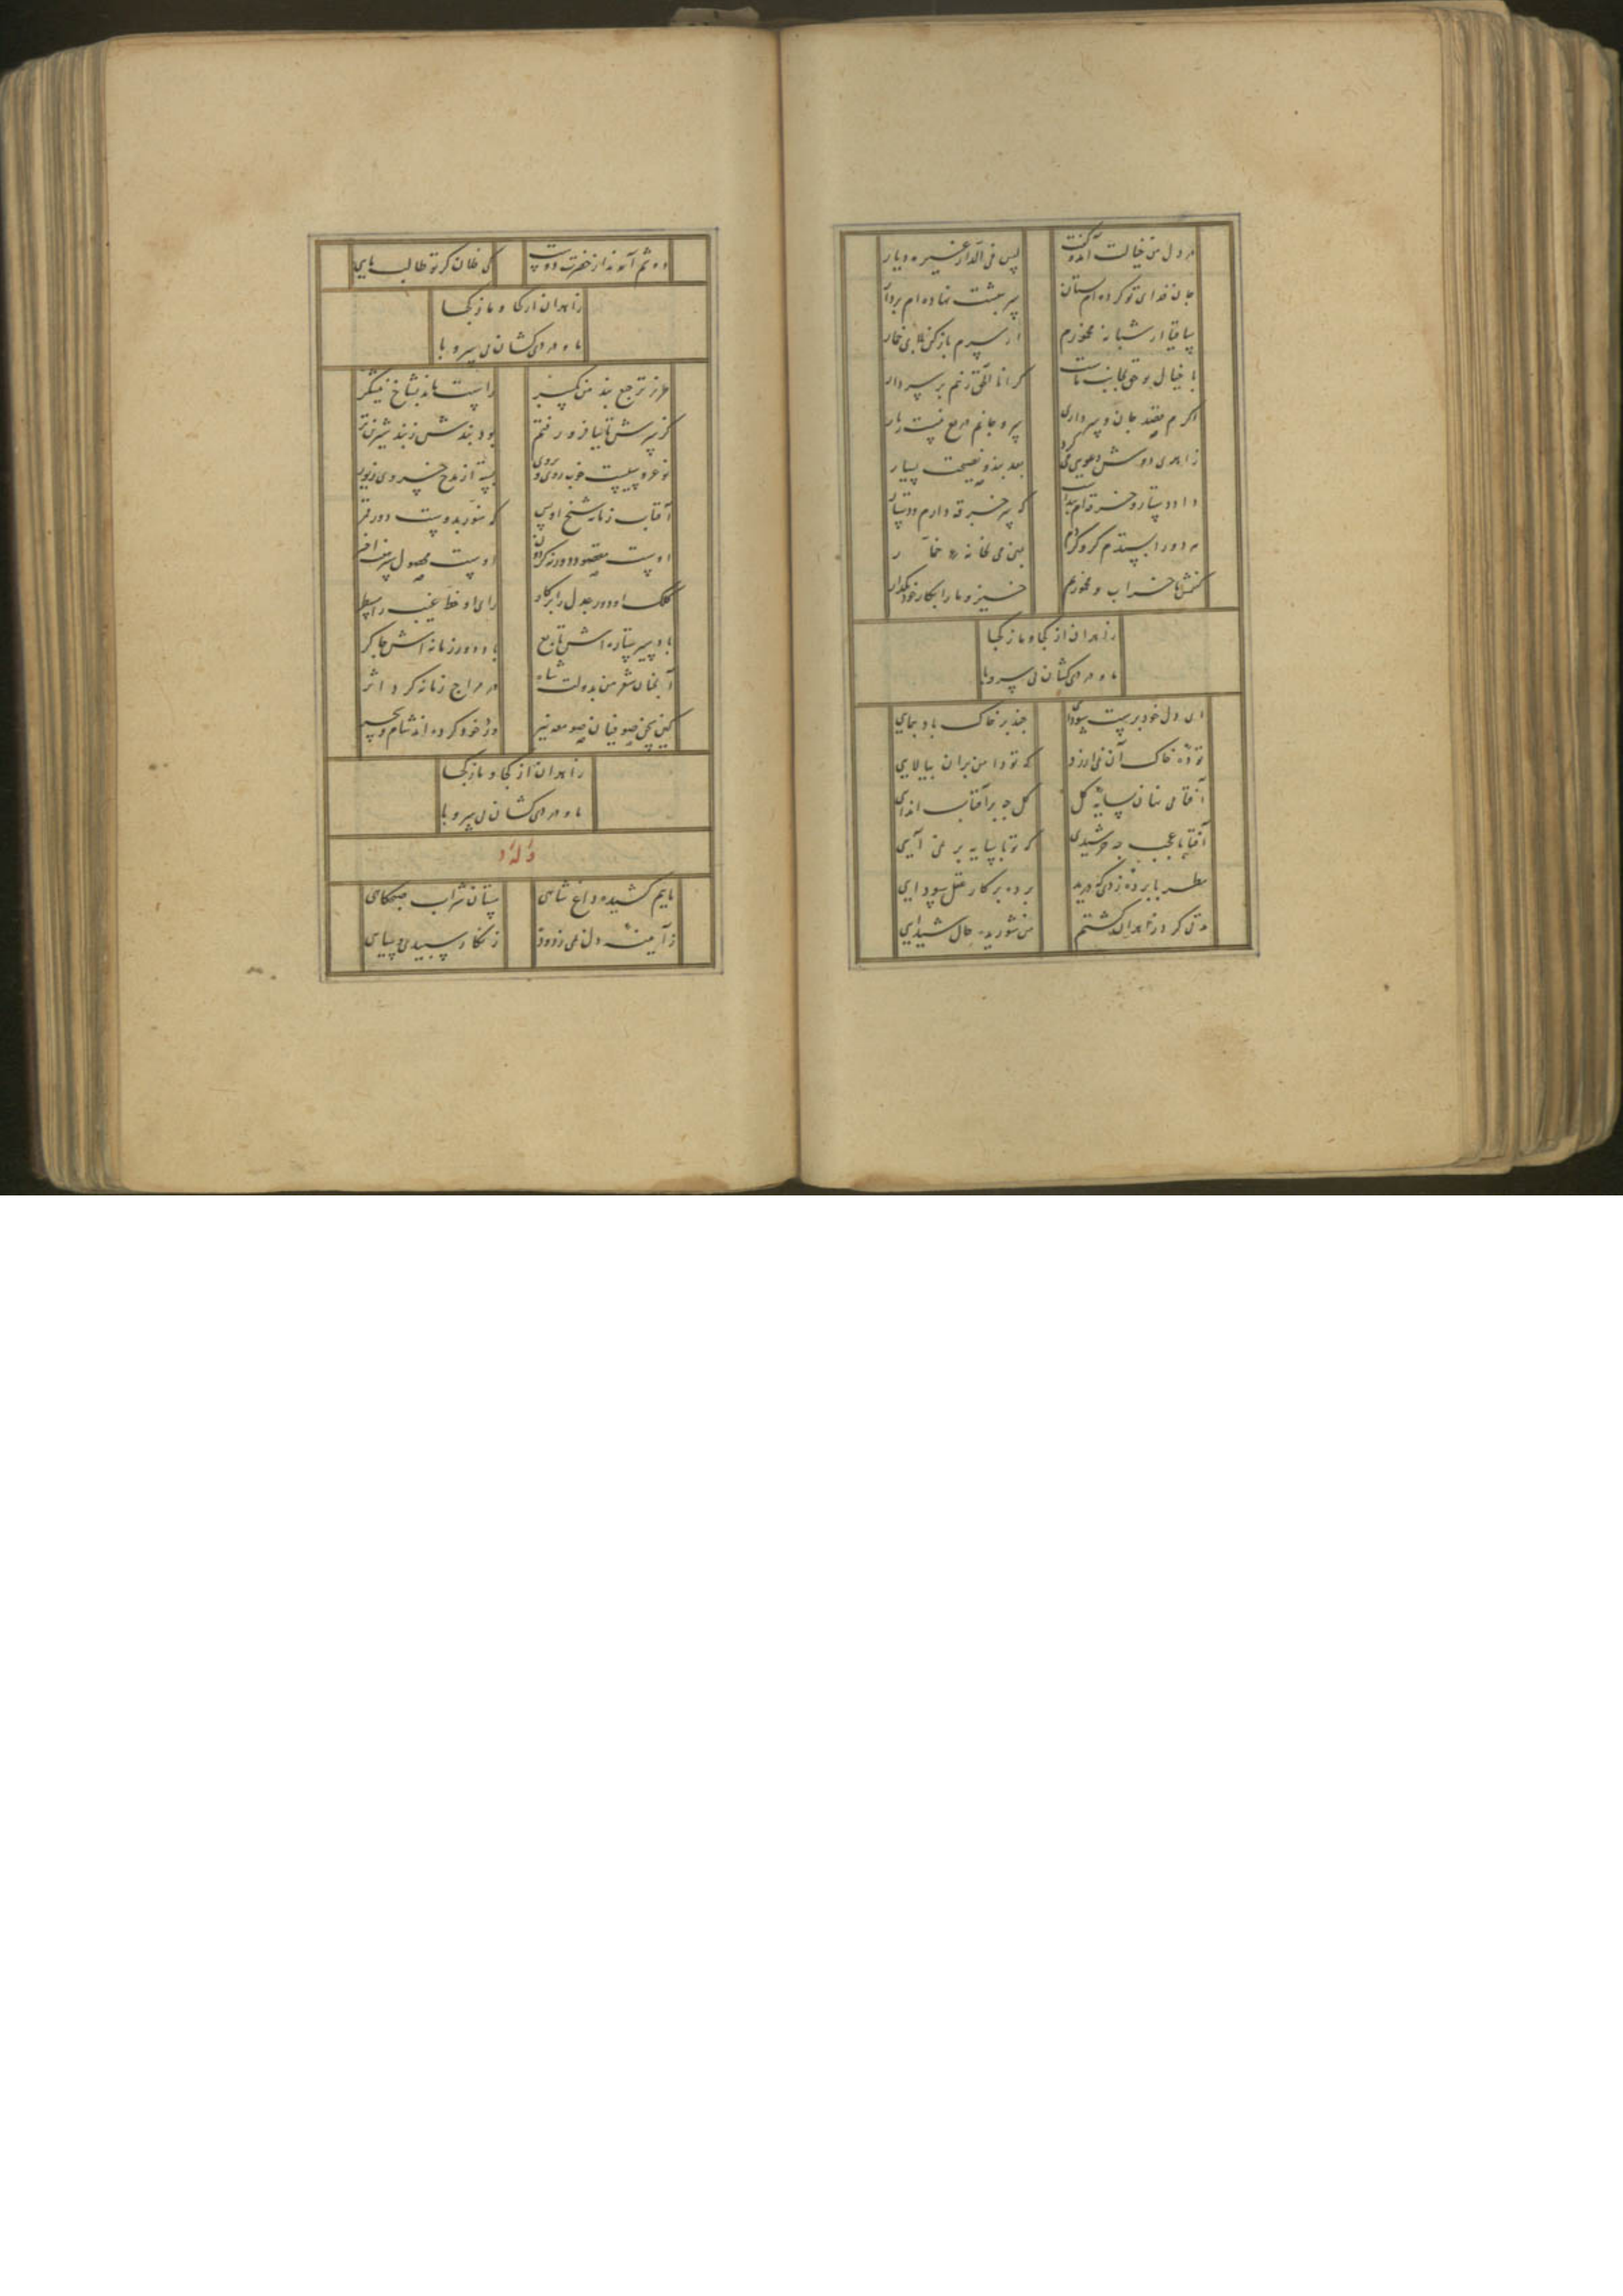 در دل من خیالت آمد و گفت لیس فی الدار غیره دیار
جان فدای تو کرده‌ام بستان سر بپشت نهاده‌ام بردار
ساقیا از شبانه مخمورم از سرم باز کن بلای خمار
با خیال تو
گر انا الحق زنم بر سر دار
اگرم قصد جان و سر داری سر و جانم دریغ نیست ز یار
زاهدی دوش دعویی می‌کرد بعد پند و نصیحت بسیار
داد دستار و خرقه‌ام
که سر خرقه دارم و دستار
هر دو را بستدم گرو کردم به می خانه خمار
گفتمش ما خراب و مخموریم خیز و ما را بکار خود بگذار
زاهدان از کجا و ما ز کجا
ما و دردی کشان بی سر و پا
ای دل خودپرست سودایی چند بر خاک باد پیمایی
توده خاک آن نمی ارزد که تو دامن بران بیالایی
آفتابی نهان بسایه گل گل چه بر آفتاب اندایی
آفتابا عجب چه خورشیدی که تو با سایه بر نمی آیی
مطربا پرده زدی که درید پرده بر کار عقل سودایی
مدتی گرد زاهدان گشتم من شوریده حال شیدایی
دوشم آمد ندا ز حضرت دوست کی فلان گر تو طالب مایی
زاهدان از کجا و ما ز کجا
ما و دردی کشان بی سر و پا
طرز ترجیع بند من یکسر راست ماند بشاخ نیشکر
کز سرش تا بپا فرو رفتم بود بندش ز بند شیرین‌تر
نو عروسیست خوب روی و
بسته از مدح خسروی زیور
آفتاب زمانه شیخ اویس که منور بدوست دور قمر
اوست مقصود دور نه گردون اوست محصول
کلک او دور عدل را پرگار رای او خط غیب را مسطر
باد سیر ستاره‌اش تابع باد دور زمانه‌اش چاکر
آنچنان شعر من بدولت شاه در مزاج زمانه کرد اثر
کین سخن صوفیان صومعه نیز ورد خود کرده‌اند شام و سحر
زاهدان از کجا و ما ز کجا
ما و دردی کشان بی سر و پا
وله
ماییم کشیده داغ شاهی مستان شراب صبحگاهی
ز آیینه دل همی زدوده زنگار سپیدی و سیاهی